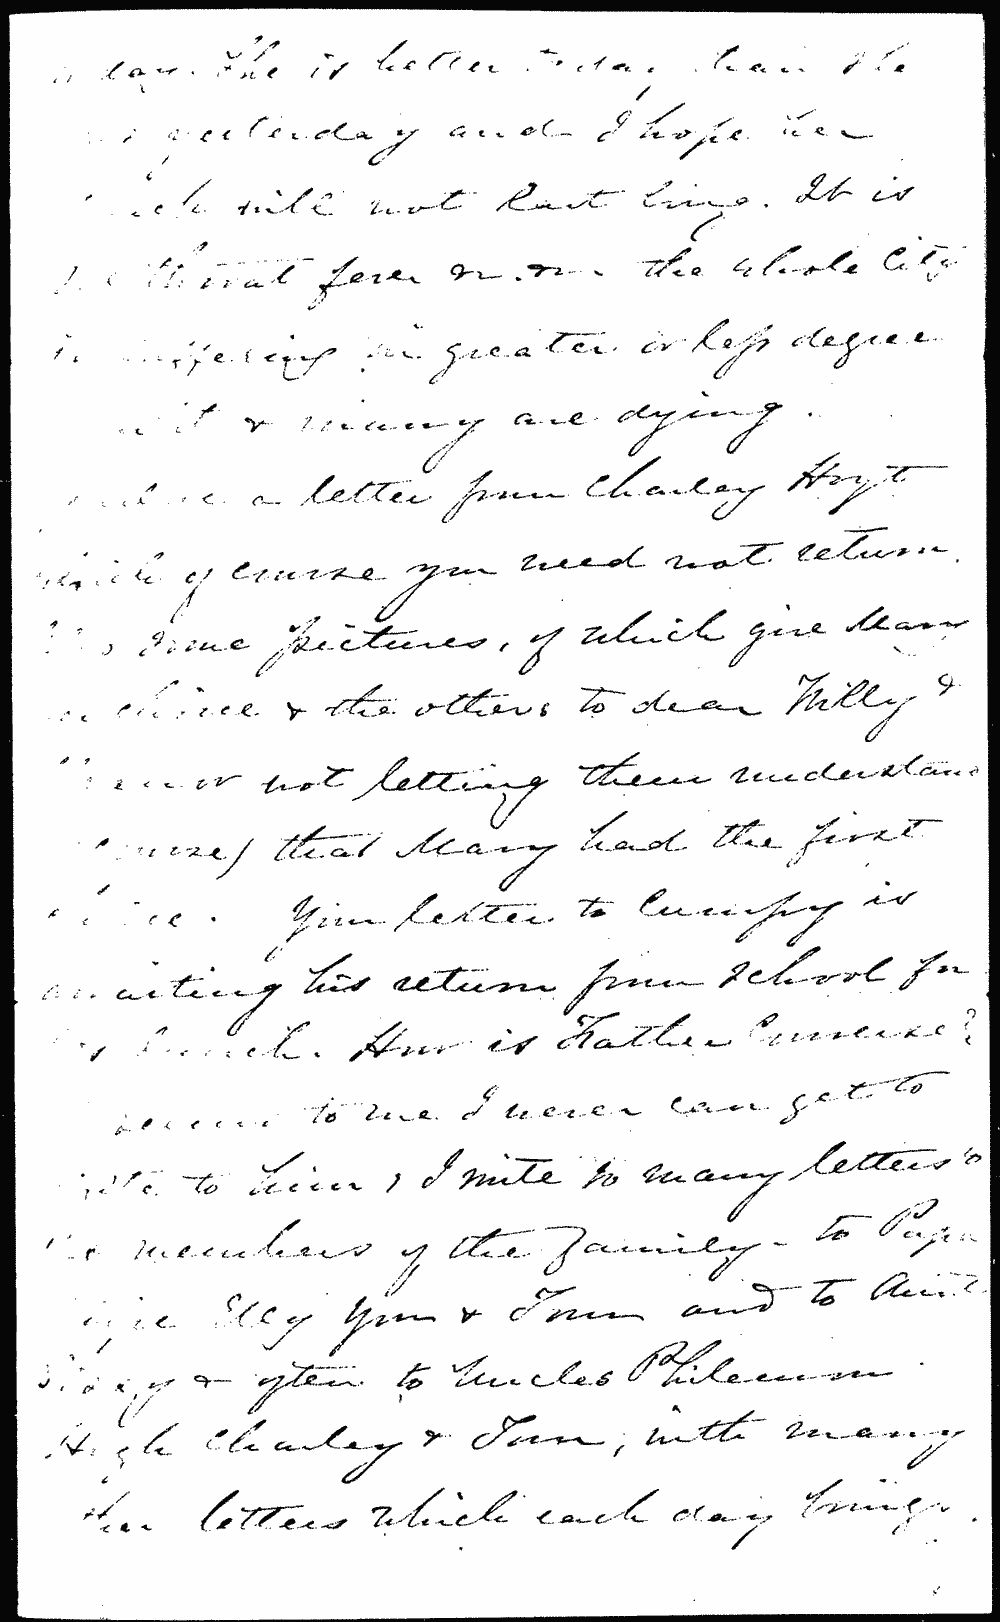 to day. She is better to day than she
was yesterday and I hope her
will not last long. It is
throat fever & now the whole City
is suffering in greater or less degree
it & many are dying.
a letter from Charley Hoyt
which of course you need not return.
Also some pictures, of which give Mary
choice & the others to dear Willy &
not letting them understand
course) that Mary had the first
choice. Your letter to Cumpy is
awaiting his return from school for
his lunch. How is Father Converse?
seems to me I never can get to
write to him, I write so many letters to
the members of the Family - to Papa
Elly You & Tom and to Aunt
& often to Uncles Philemon
Hugh Charley & Tom, with many
other letters which each day brings.